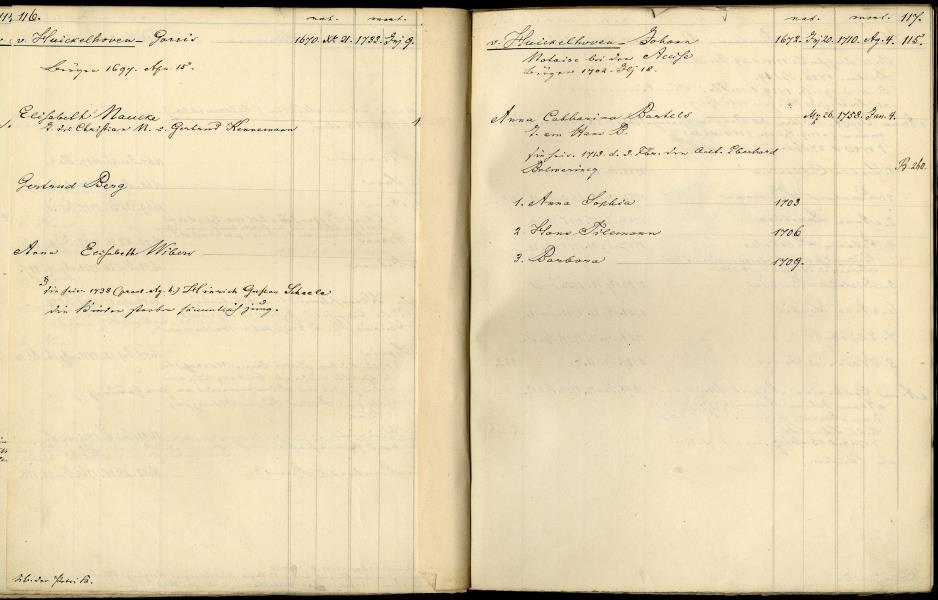 116.
nat. mort.
v. Huickelhoven Gorris 1670. Xbr 21. 1732. Juj 9.
Bürger 1697. Apr. 15.
Elisabeth Naucke
T. des Christian N. u. Gertrud Kennemann
Gertrud Berg
Anna Elisabeth Wibers
die heir. 1738 (procl. Ag. 6.) Hinrich Gustav Scheele
die Kinder starben sämmtlich jung.
117.
nat. mort.
v. Huickelhoven Johann 1672. Juj 20. 1710. Ag. 4. 115.
Notaire bei der Accise
Bürger 1702. Jlj 18.
Anna Catharina Bartels Mz 26. 1753. Jan. 4.
T. am Hans B.
sie heir. 1713. d. 3. Fbr. den Aelt. Eberhard
Bolmering B. 260.
1. Anna Sophia 1703
2 Hans Tilemann 1706
3. Barbara 1709.